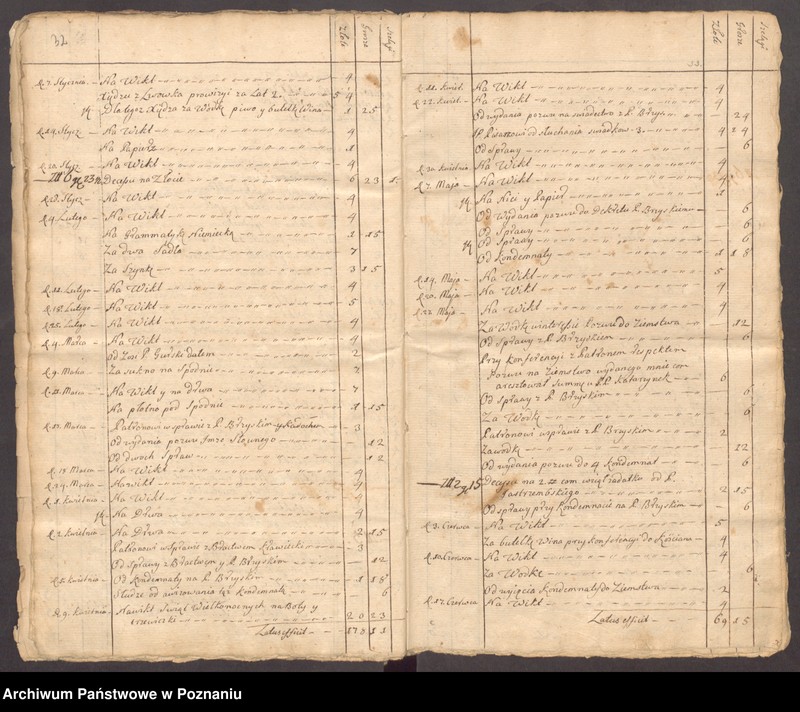 32
Złote Grosze Szelągi
d. 7. Stycznia. Na Wikt 4
Xiędzu z Lwowka prowizyi za Lat 2. 54
Dla tegoż Xiędza za Wodkę piwo y butelkę Wina 1 25
d. 14. Stycz. Na Wikt 4
Na Papier 1
Na Wikt 4
Decesu na Złocie 6 23 1
Stycz Na Wikt 4
d. 4. Lutego Na Wikt 4
Na Grammatykę Niemiecką 1 15
Za dwa Sadła 7
Za Szynkę 3 15
d. 11. Lutego Na Wikt 4
d. 18. Lutego Na Wikt 5
d. 25. Lutego Na Wikt 4
d. 4. Marca Na Wikt 4
dałem 2
d. 9. Marca Za sukno na Spodnie 7
Marca Na Wikt y na drwa 7
Na płotno pod Spodnie 1 15
Marca Patronowi w sprawie z P. Bżyskim y 3
Od wydania pozwu 12
Od dwoch Spraw 12
Marca Na Wikt 4
Marca Na Wikt 4
d. 1. Kwietnia Na Wikt 4
Na Drwa 4
d. 2. Kwietnia Na Drwa 2 15
Patronowi w Sprawie z Bractwem Krawiecki 3
Od Sprawy z Bractwem y P. Bżyskim 12
Kwietnia Od Kondemnaty na P. Bżyskim 1 18
Słudze od tey Kondemnaty 6
d. 9. Kwietnia Na wikt Swiąt Wielkonocnych na Boty y
trzewiczki 20 23
Latus efficit 173 1 1
33.
Złote Grosze Szelągi
Kwiet. Na Wikt 4
d. 22. Kwiet. Na Wikt 4
Od wydania pozwu na swiadectwo z P. Bżys. 24
do słuchania swiadkow 3. 4 24
Od Sprawy 6
d. 30. Kwietnia Na Wikt 4
d. 7. Maja Na Wikt 4
Na Nici y Papier 1
Od Wydania pozwu do Dekretu P. Bżyskiem 6
Od Sprawy 6
Od Sprawy 6
Od Kondemnaty 1 18
d. 14. Maja Na Wikt 5
d. 20. Maja Na Wikt 4
d. 22. Maja Na Wikt 4
Za Wodkę pozwu do Ziemstwa 12
Od Sprawy z P. Bżyskiem 6
Przy konferencyi z Patronem respektem
Pozwu na Ziemstwo wydanego mnie com
aresztował Summę u P.P. Katarynek 6
Od Sprawy z P. Bżyskim 6
Za Wodkę 6
Patronowi w sprawie z P. Bżyskim 2
Za wodkę 12
Od wydania pozwu do 4 Kondemnat 6
Decesu na 2 # com wziął zadatku od P.
Jastrzemskiego 2 15
Od sprawy przy Kondemnacie na P. Bżyskim 6
d. 3. Czerwca Na Wikt 5
Za butelkę Wina przy Konferencyi do Kościana 4
d. 10. Czerwca Na Wikt 4
Za Wodkę 6
Od wyięcia Kondemnaty do Ziemstwa 2
d. 17. Czerwca Na Wikt 4
Latus efficit 69 15
Archiwum Państwowe w Poznaniu